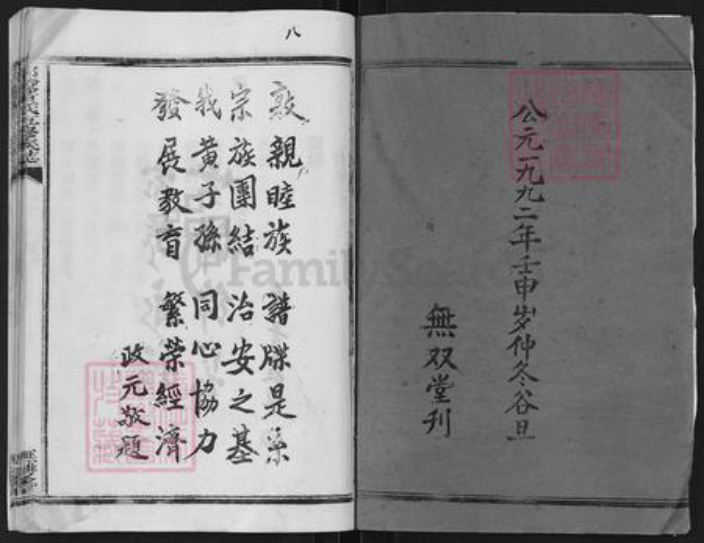 公元一九九二年壬申岁仲冬谷旦
無双堂刊
八
敦親睦族 譜牒是系
宗族團結 治安之基
我黄子孫 同心協力
發展教育 繁荣經濟
政元敬題
FamilySearch